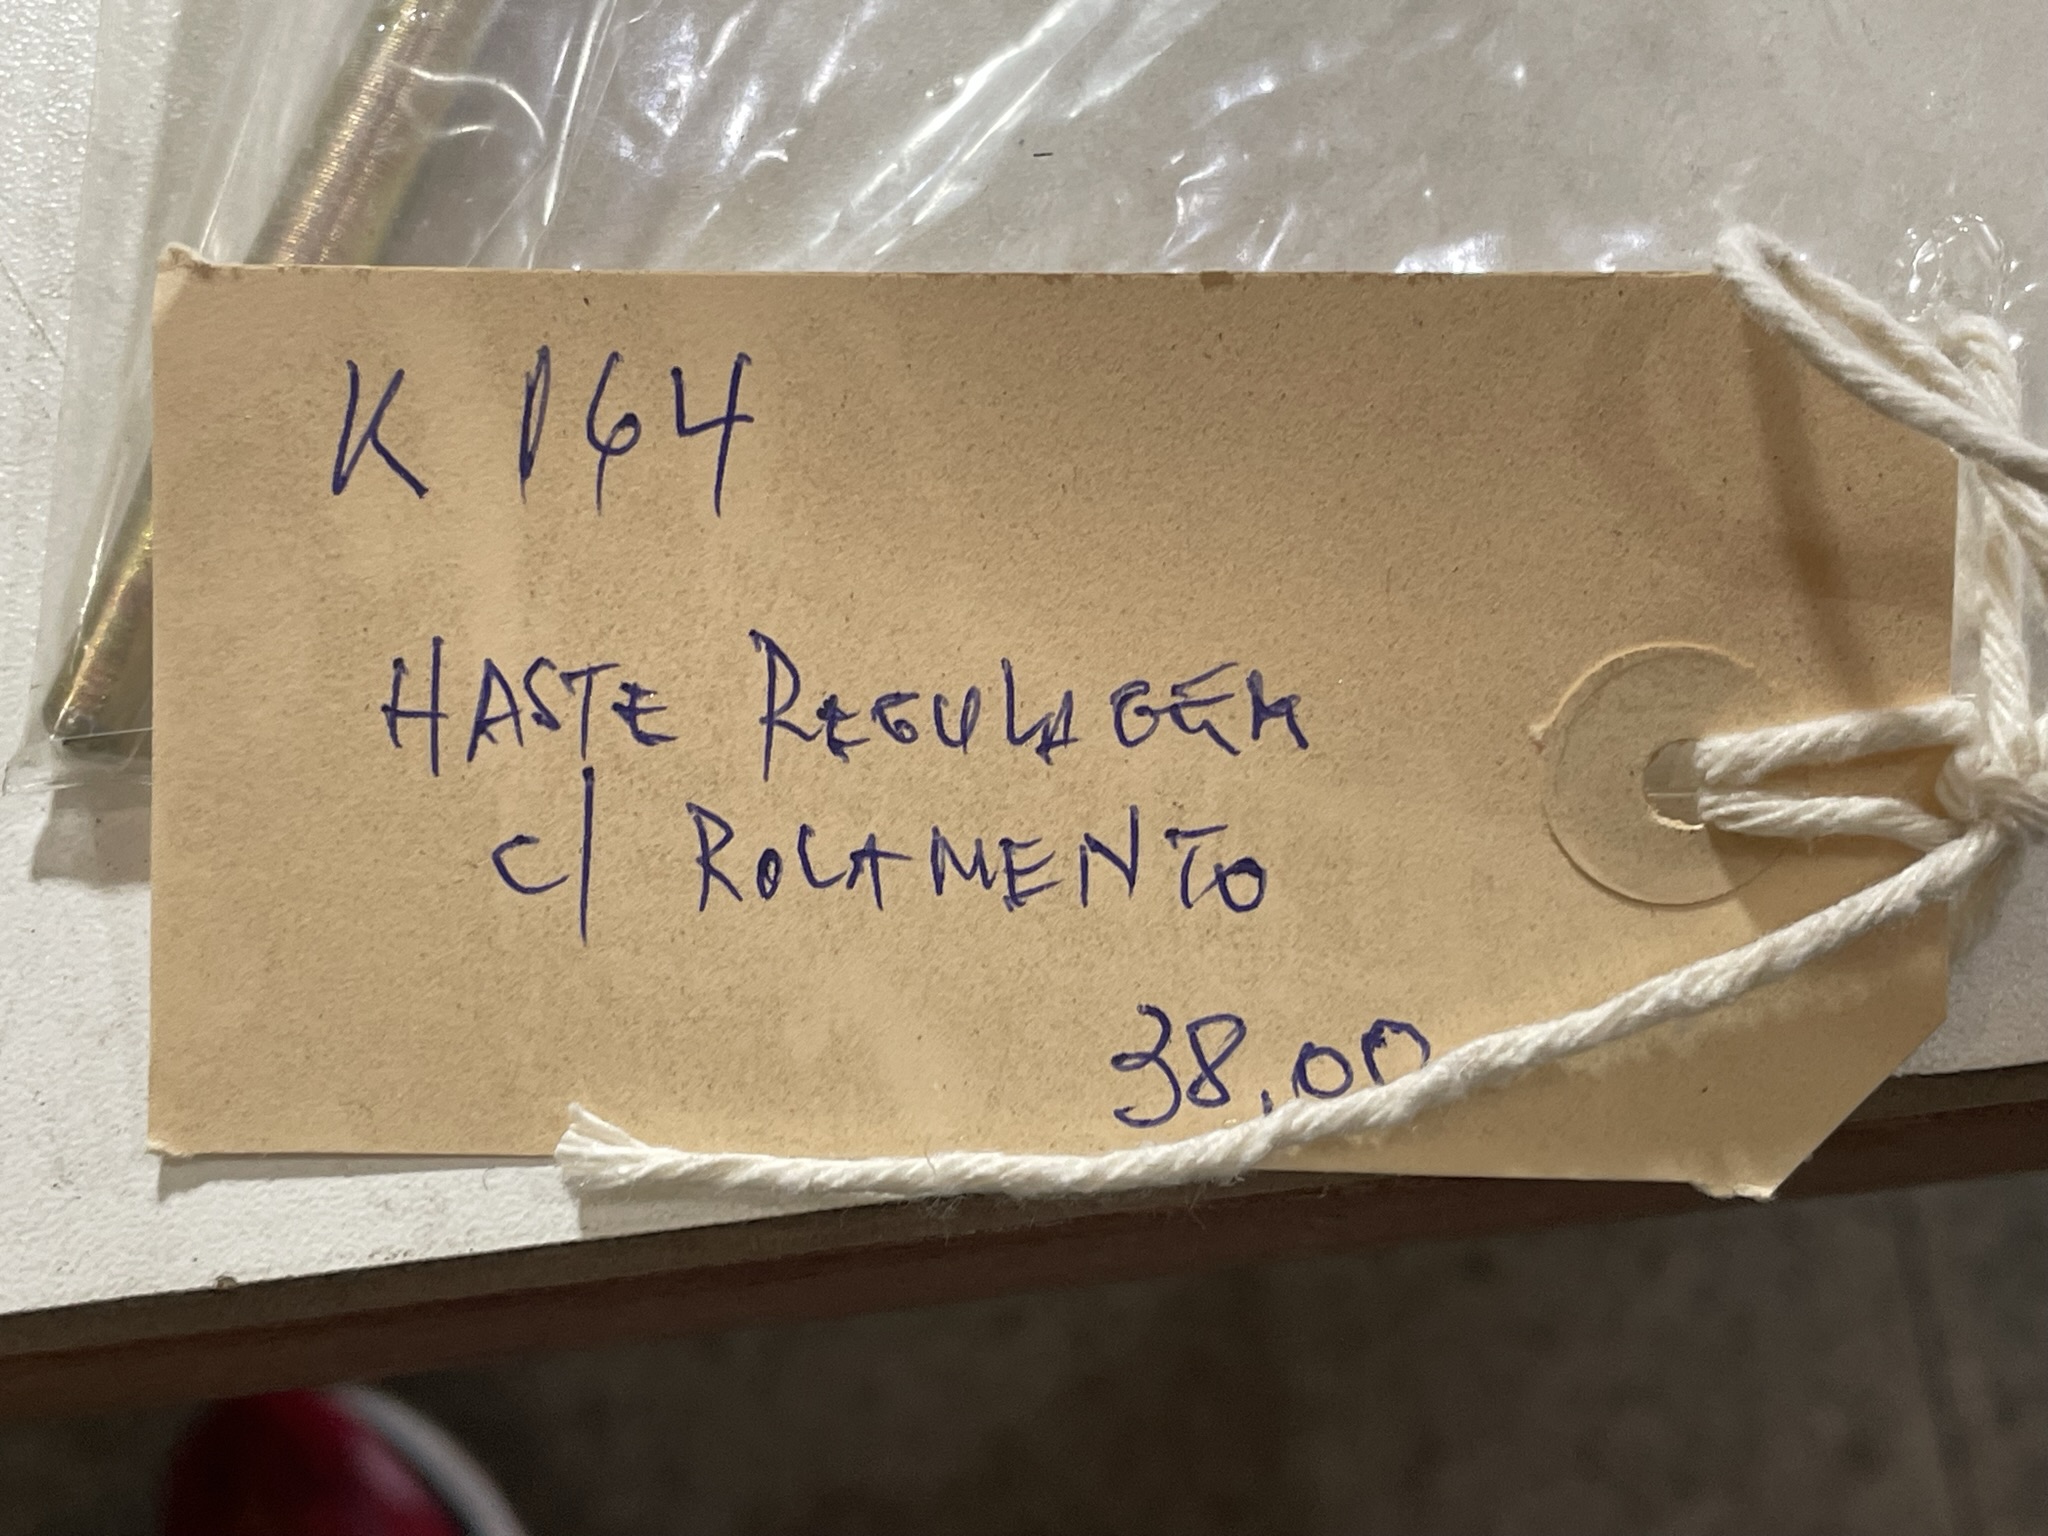 K 164
HASTE REGULAGEM
C/ ROLAMENTO
38,00